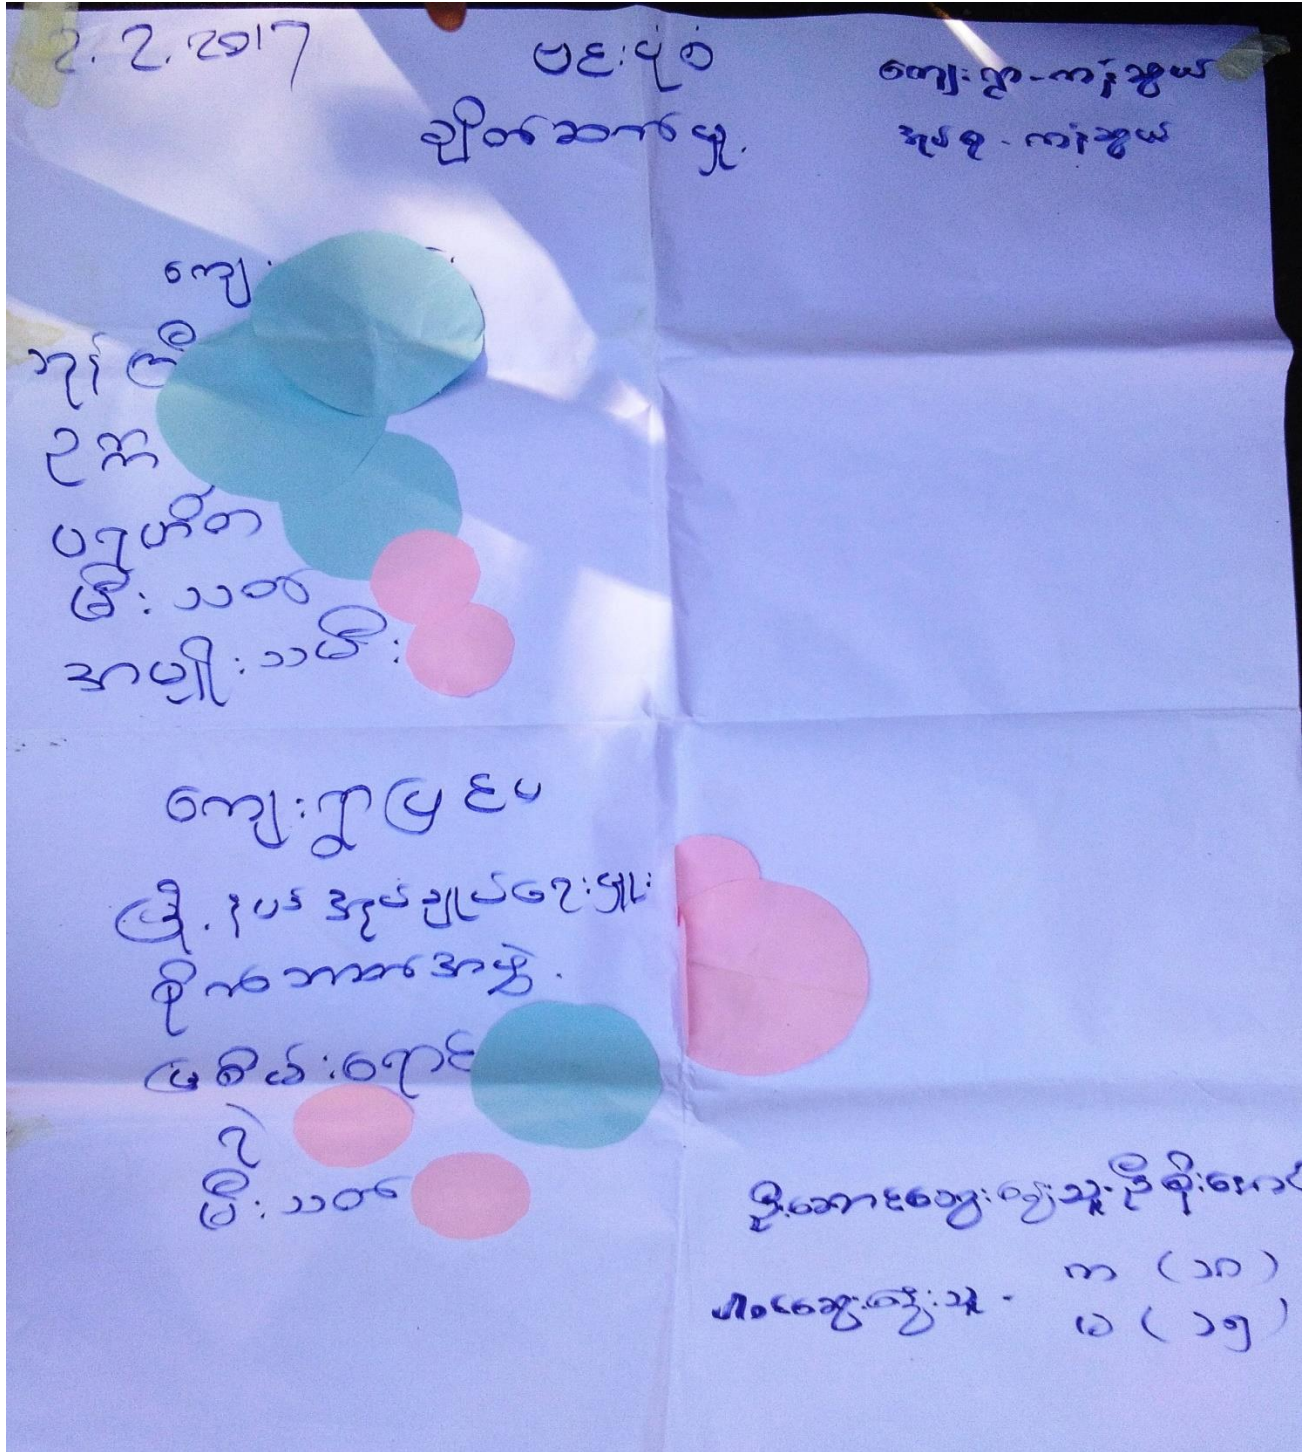 2.2.2017
ဗင်းပုံစံ
ချိတ်ဆက်မှု.
ကျေးရွာ-ကန်ဆွယ်
အုပ်စု - ကန်ဆွယ်
ကျေး
ဘုန်းကြီ
ဥက္က
ပရဟိတ
မီးသတ်
အမျိုးသမီး
ကျေးရွာပြင်ပ
မြို့နယ် အုပ်ချုပ်ရေးမှူး
စိုက်ဘဏ်အဖွဲ့.
မြစိမ်းရောင်
ရဲ
မီးသတ်
ဦးဆောင်ဆွေးနွေးသူ-ဦစိုးအောင်
ပါဝင်ဆွေးနွေးသူ -
က (၁၈)
မ (၁၅)